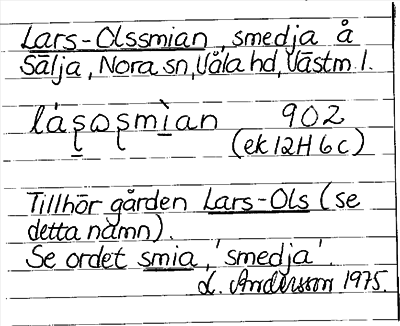 Lars-Olssmian, smedja å
Sälja, Nora sn, Våla hd, Västm l.
låṣoṣmìan 902
(ek 12H 6c)
Tillhör gården Lars-Ols (se
detta namn).
Se ordet smia, 'smedja'.
L. Andersson 1975.